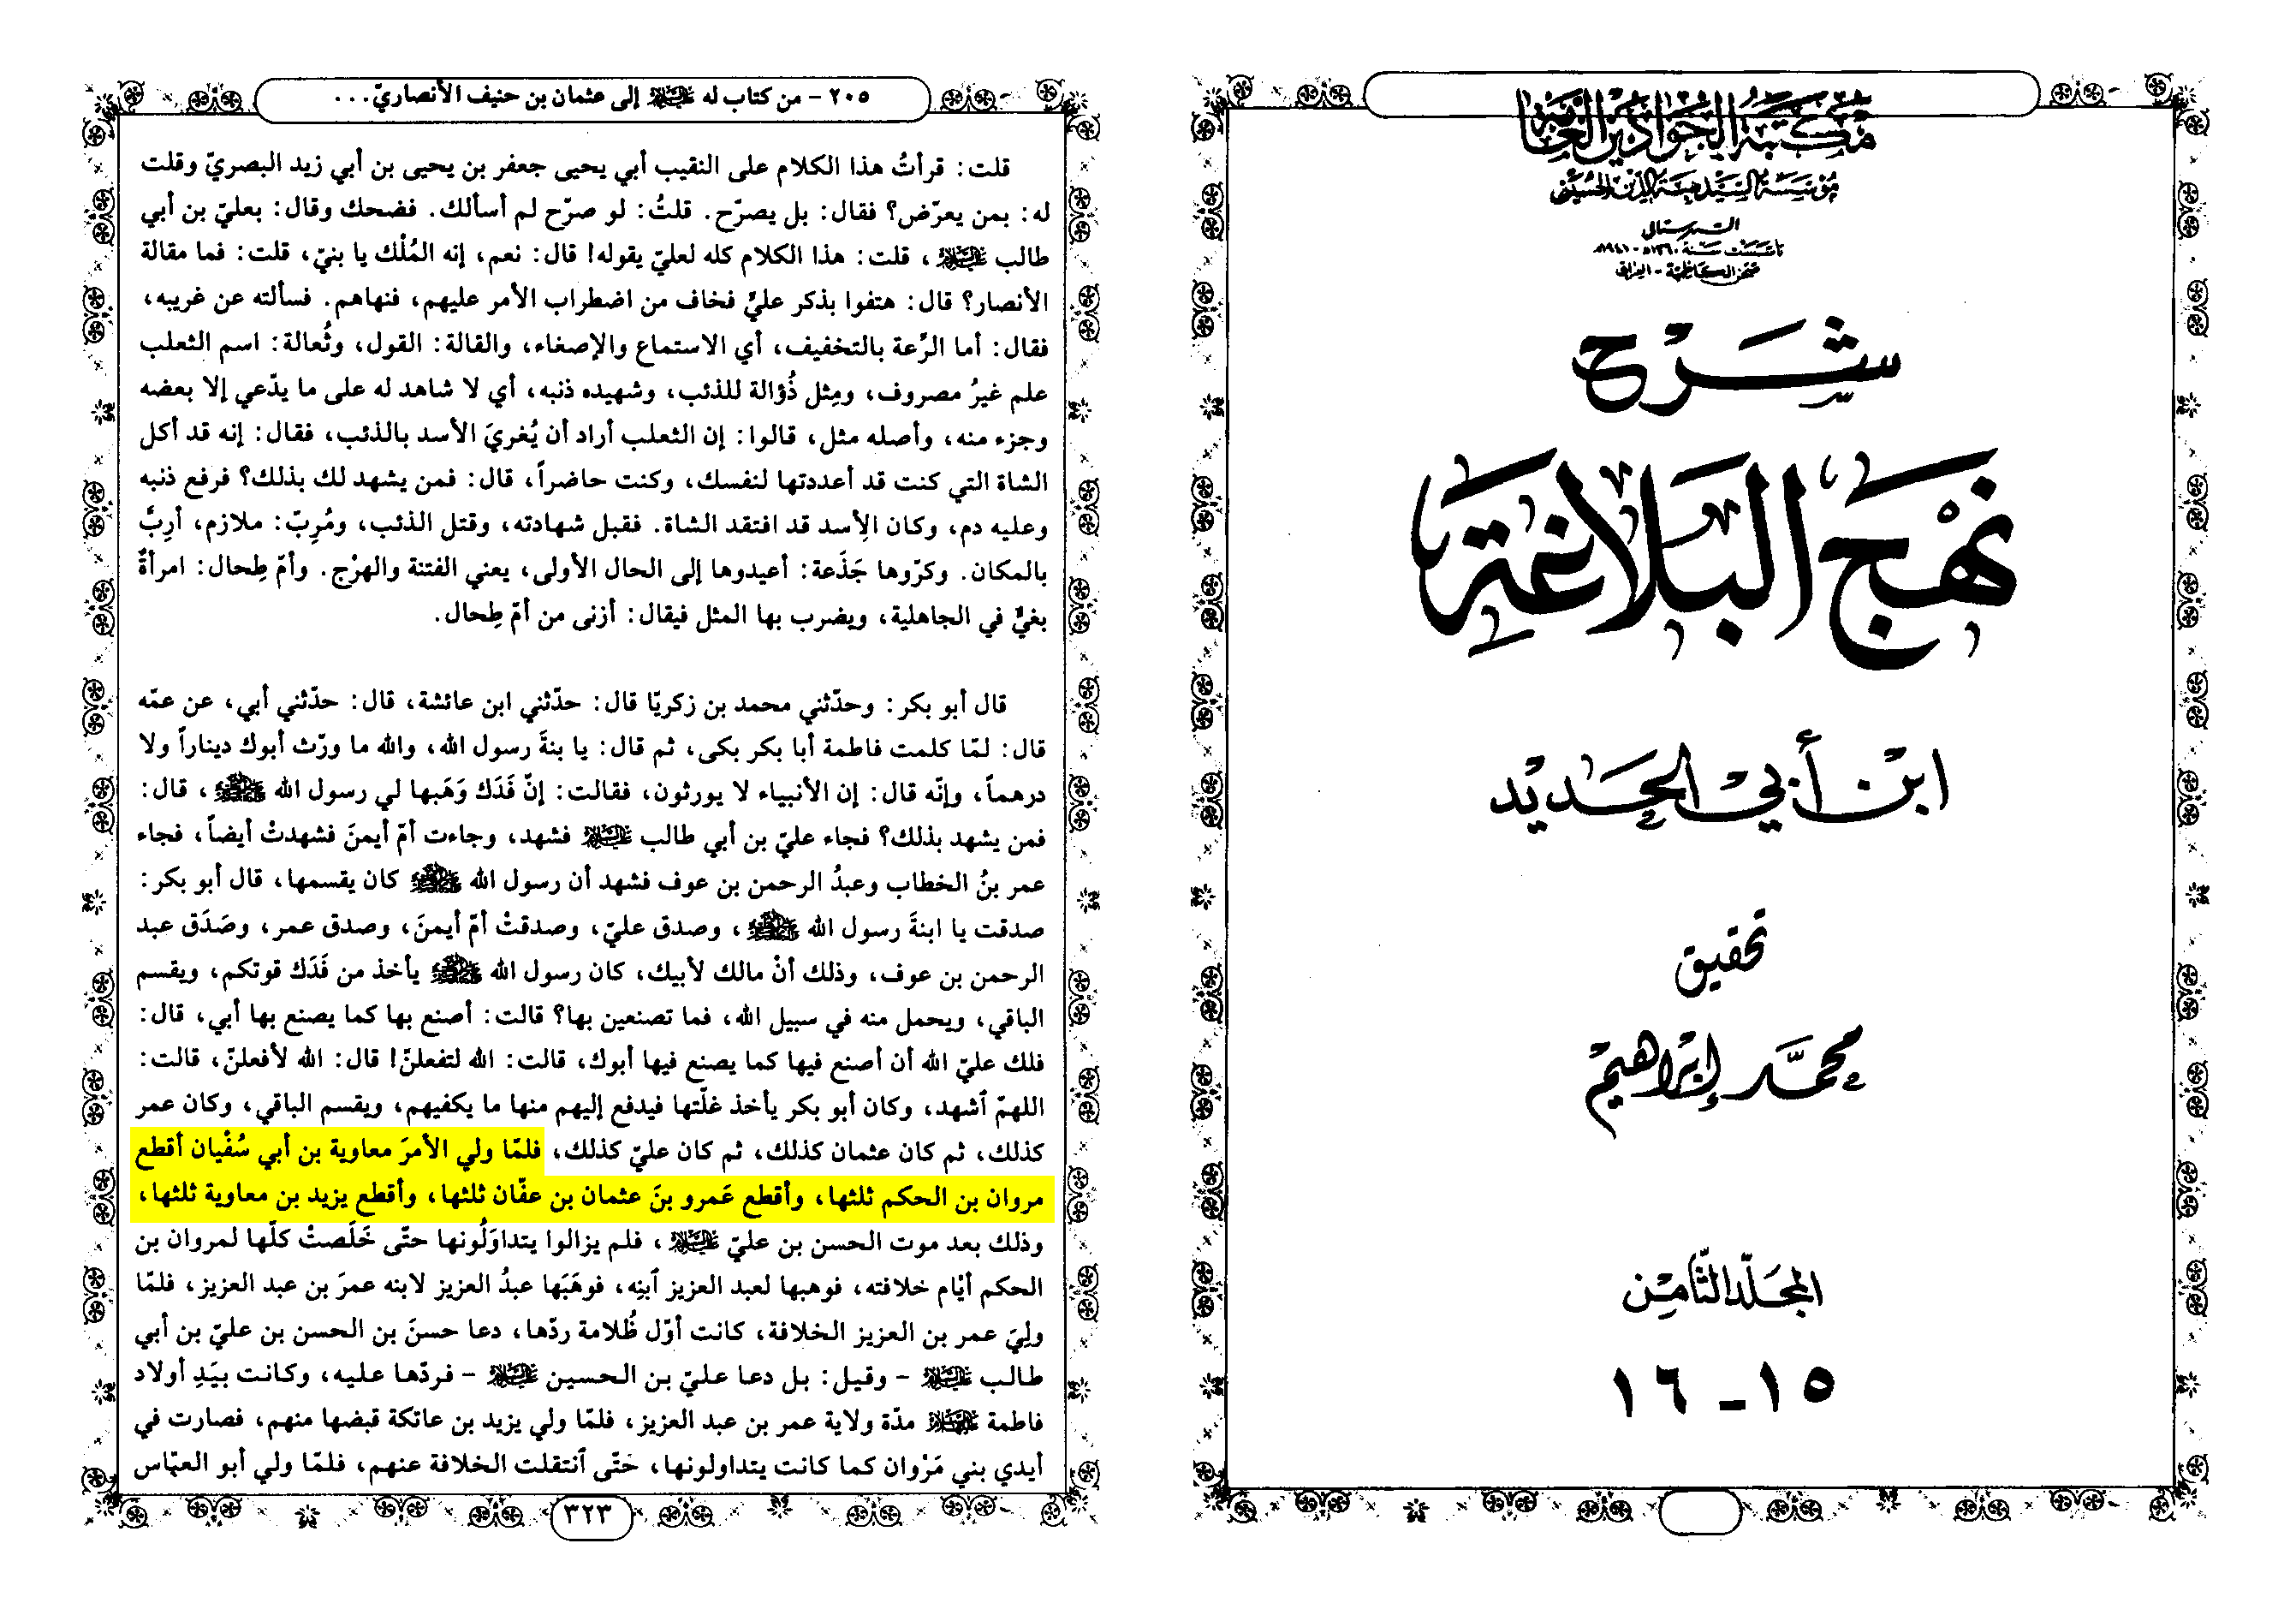 مكتبة الجوادين العامة
مؤسسة السيد هبة الدين الحسيني
الشهرستاني
تأسست سنة ١٣٦٠هـ - ١٩٤١م
صحن الكاظمية - العراق
شرح
نهج البلاغة
ابن أبي الحديد
تحقيق
محمد إبراهيم
المجلد الثامن
١٥ - ١٦
٢٠٥ - من كتاب له عليه السلام إلى عثمان بن حنيف الأنصاريّ...
قلت: قرأتُ هذا الكلام على النقيب أبي يحيى جعفر بن يحيى بن أبي زيد البصريّ وقلت
له: بمن يعرّض؟ فقال: بل يصرّح. قلتُ: لو صرّح لم أسألك. فضحك وقال: بعليّ بن أبي
طالب عليه السلام، قلت: هذا الكلام كله لعليّ يقوله! قال: نعم، إنه المُلْك يا بنيّ، قلت: فما مقالة
الأنصار؟ قال: هتفوا بذكر عليٍّ فخاف من اضطراب الأمر عليهم، فنهاهم. فسألته عن غريبه،
فقال: أما الرِّعة بالتخفيف، أي الاستماع والإصغاء، والقالة: القول، وثُعالة: اسم الثعلب
علم غيرُ مصروف، ومِثل ذُؤالة للذئب، وشهيده ذنبه، أي لا شاهد له على ما يدّعي إلا بعضه
وجزء منه، وأصله مثل، قالوا: إن الثعلب أراد أن يُغريَ الأسد بالذئب، فقال: إنه قد أكل
الشاة التي كنت قد أعددتها لنفسك، وكنت حاضراً، قال: فمن يشهد لك بذلك؟ فرفع ذنبه
وعليه دم، وكان الأسد قد افتقد الشاة. فقبل شهادته، وقتل الذئب، ومُرِبّ: ملازم، أربَّ
بالمكان. وكرّوها جَذَعة: أعيدوها إلى الحال الأولى، يعني الفتنة والهرْج. وأمّ طِحال: امرأةٌ
بغيٌّ في الجاهلية، ويضرب بها المثل فيقال: أزنى من أمّ طِحال.
قال أبو بكر: وحدّثني محمد بن زكريّا قال: حدّثني ابن عائشة، قال: حدّثني أبي، عن عمّه
قال: لمّا كلمت فاطمة أبا بكر بكى، ثم قال: يا بنةَ رسول الله، والله ما ورّث أبوك ديناراً ولا
درهماً، وإنّه قال: إن الأنبياء لا يورثون، فقالت: إنّ فَدَك وَهَبها لي رسول الله ﷺ، قال:
فمن يشهد بذلك؟ فجاء عليّ بن أبي طالب عليه السلام فشهد، وجاءت أمّ أيمنَ فشهدتْ أيضاً، فجاء
عمر بنُ الخطاب وعبدُ الرحمن بن عوف فشهد أن رسول الله ﷺ كان يقسمها، قال أبو بكر:
صدقت يا ابنةَ رسول الله ﷺ، وصدق عليّ، وصدقتْ أمّ أيمنَ، وصدق عمر، وصَدَق عبد
الرحمن بن عوف، وذلك أنّ مالك لأبيك، كان رسول الله ﷺ يأخذ من فَدَك قوتكم، ويقسم
الباقي، ويحمل منه في سبيل الله، فما تصنعين بها؟ قالت: أصنع بها كما يصنع بها أبي، قال:
فلك عليّ الله أن أصنع فيها كما يصنع فيها أبوك، قالت: الله لتفعلنّ! قال: الله لأفعلنّ، قالت:
اللهمّ ٱشهد، وكان أبو بكر يأخذ غلّتها فيدفع إليهم منها ما يكفيهم، ويقسم الباقي، وكان عمر
كذلك، ثم كان عثمان كذلك، ثم كان عليّ كذلك، فلمّا ولي الأمرَ معاوية بن أبي سُفْيان أقطع
مروان بن الحكم ثلثها، وأقطع عَمرو بنَ عثمان بن عفّان ثلثها، وأقطع يزيد بن معاوية ثلثها،
وذلك بعد موت الحسن بن عليّ عليه السلام، فلم يزالوا يتداوَلُونها حتّى خَلَصتْ كلّها لمروان بن
الحكم أيّام خلافته، فوهبها لعبد العزيز ٱبنِه، فوهَبَها عبدُ العزيز لابنه عمرَ بن عبد العزيز، فلمّا
ولِيَ عمر بن العزيز الخلافة، كانت أوّل ظُلامة ردّها، دعا حسنَ بن الحسن بن عليّ بن أبي
طالب عليه السلام - وقيل: بل دعا عليّ بن الحسين عليه السلام - فردّها عليه، وكانت بيَدِ أولاد
فاطمة عليها السلام مدّة ولاية عمر بن عبد العزيز، فلمّا ولي يزيد بن عاتكة قبضها منهم، فصارت في
أيدي بني مَرْوان كما كانت يتداولونها، حَتّى ٱنتقلت الخلافة عنهم، فلمّا ولي أبو العبّاس
٣٢٣